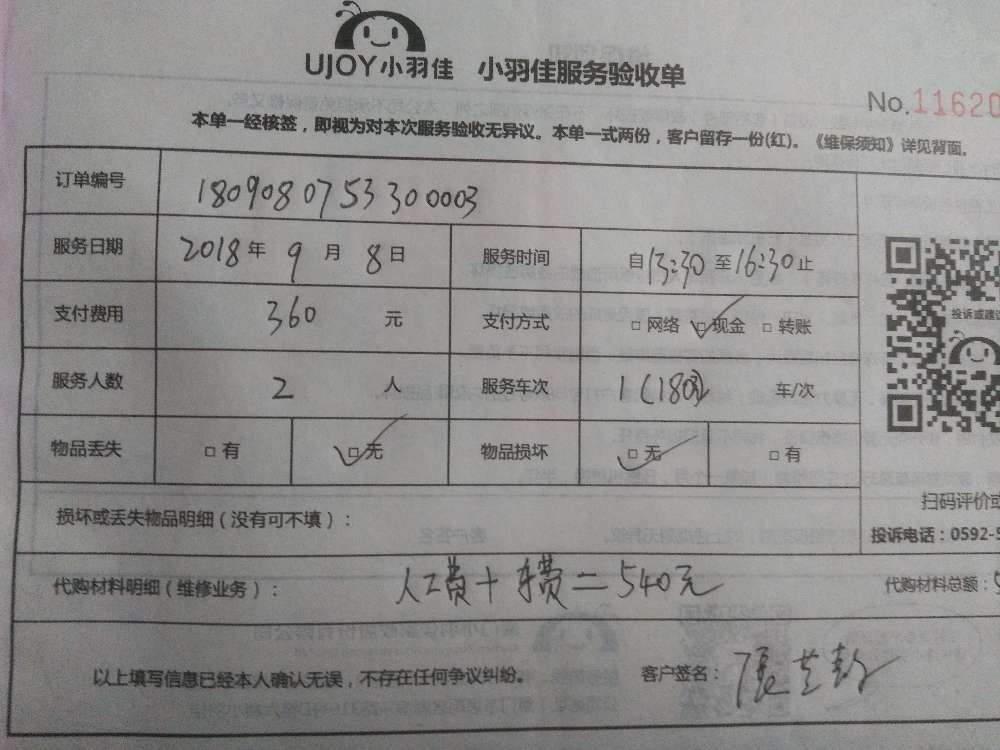 UJOY小羽佳 小羽佳服务验收单
No.11620
本单一经核签，即视为对本次服务验收无异议。本单一式两份，客户留存一份(红)。《维保须知》详见背面。
订单编号 180908075330003
服务日期 2018年9月8日 服务时间 自13:30至16:30止
支付费用 360 元 支付方式 □网络 □现金 □转账
投诉或建议
服务人数 2 人 服务车次 1(180) 车/次
物品丢失 □有 □无 物品损坏 □无 □有
扫码评价或
损坏或丢失物品明细（没有可不填）：
投诉电话：0592-5
代购材料明细（维修业务）： 人工费+车费=540元 代购材料总额：5
以上填写信息已经本人确认无误，不存在任何争议纠纷。 客户签名：